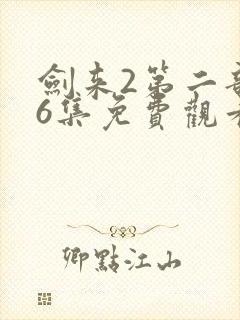 劍来2第二部
6集免費觀看
卿點江山